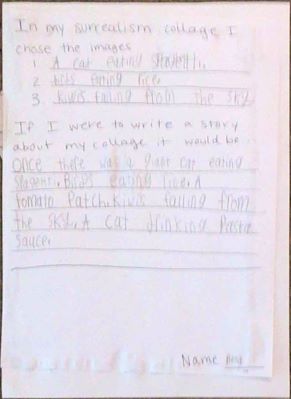 In my surrealism collage I
chose the images
1. A cat eating spagenti.
2. birds eating rice.
3. kiwis falling from the sky
If I were to write a story
about my collage it would be.
Once there was a giant cat eating
spagenti. Birds eating rice. A
tomato Patch. Kiwis falling from
the sky. A cat drinking Pasta
Sauce.
Name